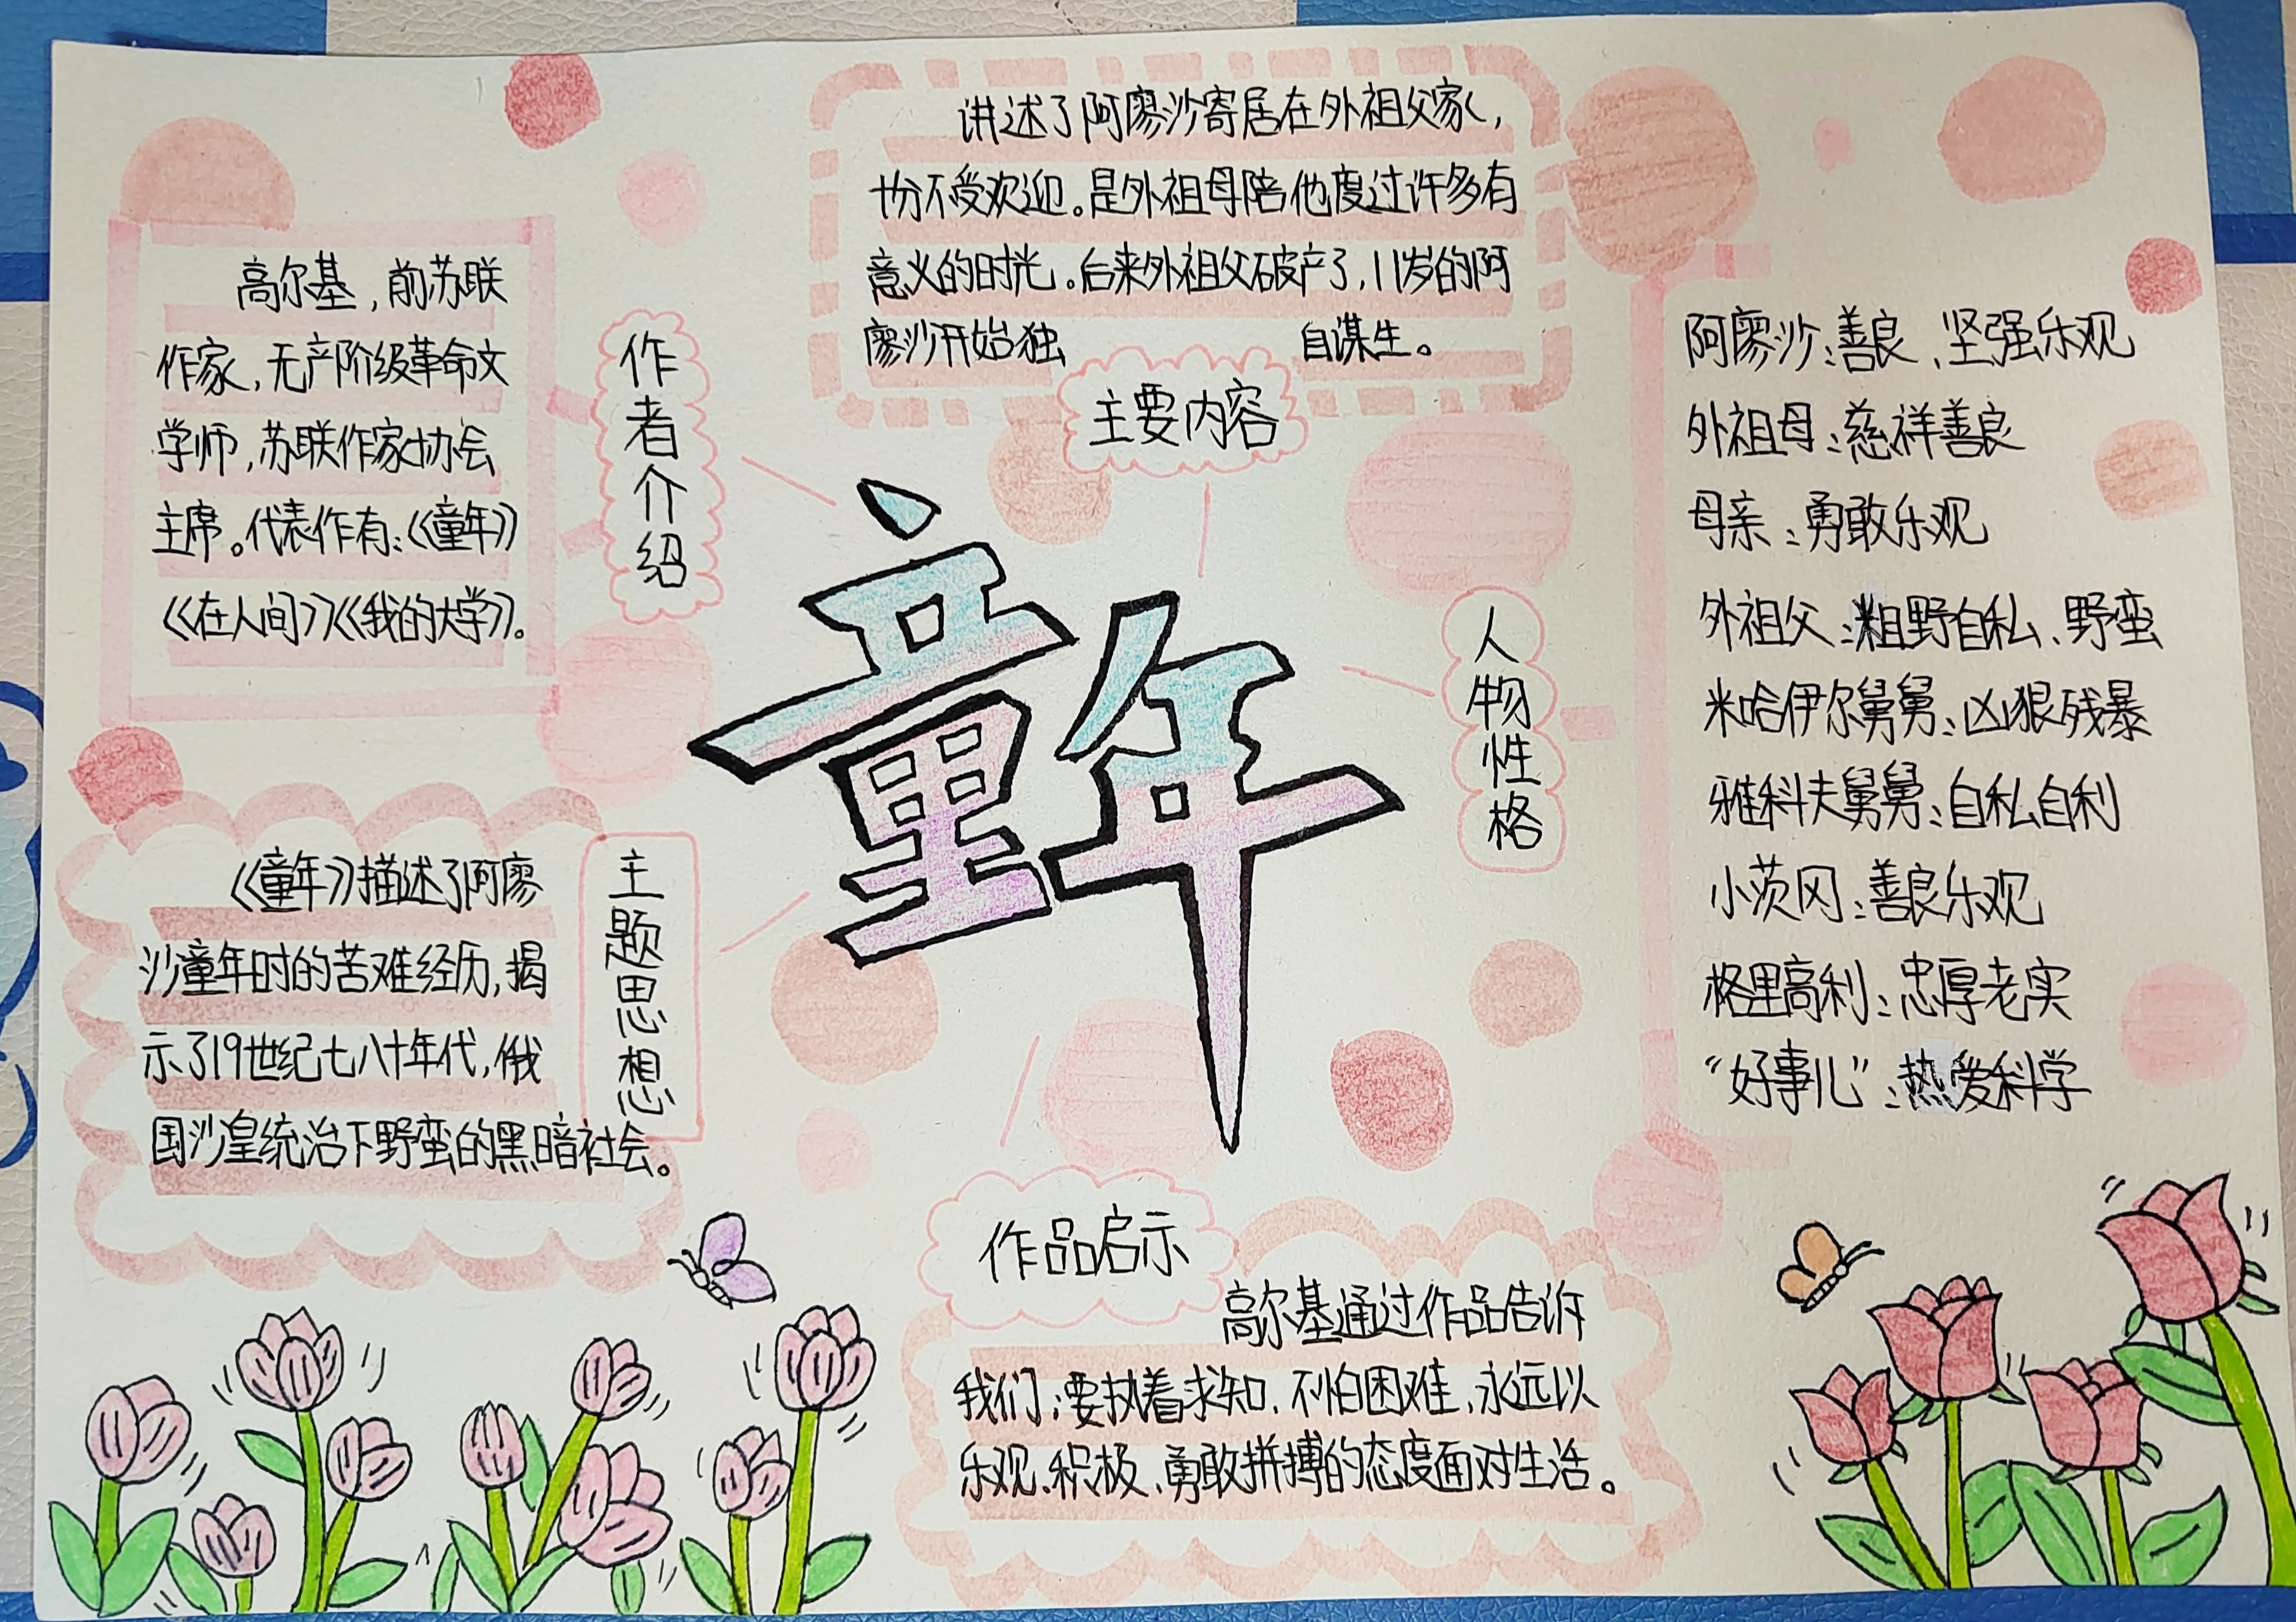 童年
作者介绍
高尔基，前苏联
作家，无产阶级革命文
学师，苏联作家协会
主席。代表作有：《童年》
《在人间》《我的大学》。
主要内容
讲述了阿廖沙寄居在外祖父家，
十分不受欢迎。是外祖母陪他度过许多有
意义的时光。后来外祖父破产了，11岁的阿
廖沙开始独自谋生。
人物性格
阿廖沙：善良、坚强乐观
外祖母：慈祥善良
母亲：勇敢乐观
外祖父：粗野自私、野蛮
米哈伊尔舅舅：凶狠残暴
雅科夫舅舅：自私自利
小茨冈：善良乐观
格里高利：忠厚老实
“好事儿”：热爱科学
主题思想
《童年》描述了阿廖
沙童年时的苦难经历，揭
示了19世纪七八十年代，俄
国沙皇统治下野蛮的黑暗社会。
作品启示
高尔基通过作品告诉
我们：要执着求知、不怕困难、永远以
乐观、积极、勇敢拼搏的态度面对生活。